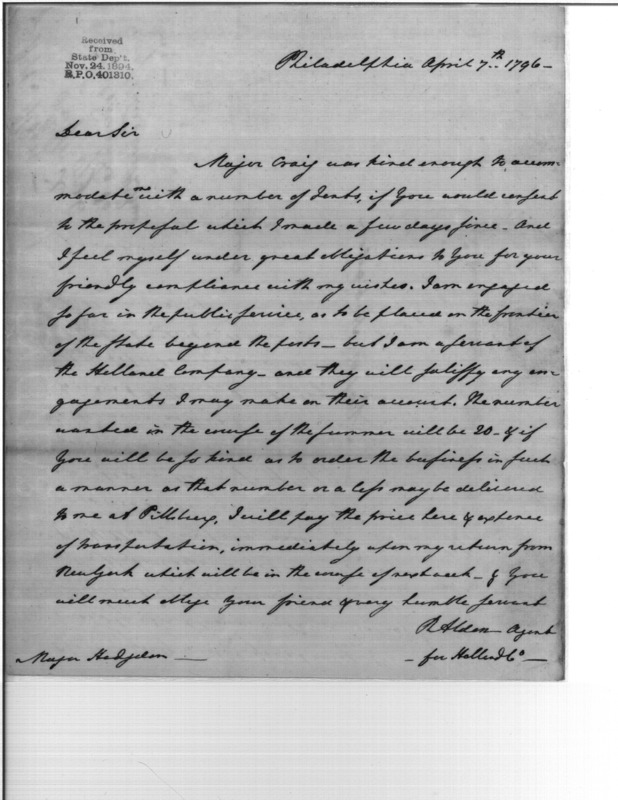 Received
from
State Dep't.
Nov. 24. 1894.
R.P.O. 401310.
Philadelphia April 7th. 1796-
Dear Sir
Major Craig was kind enough to accom-
modate me with a number of Tents, if You would consent
to the proposal which I made a few days since - And
I feel myself under great obligations to You for your
friendly compliance with my wishes. I am engaged
so far in the public service, as to be placed on the frontier
of the State beyond the posts - but I am a servant of
the Holland Company - and they will satisfy any en-
gagements I may make on their account. The number
wanted in the course of the summer will be 20 - & if
You will be so kind as to order the business in such
a manner as that number or a less may be delivered
to me at Pittsburg, I will pay the price here & expence
of transportation, immediately upon my return from
New York which will be in the course of next week - & You
will much oblige Your friend & very humble servant
R Alden Agent
Major Hodgdon - for Holland Co -